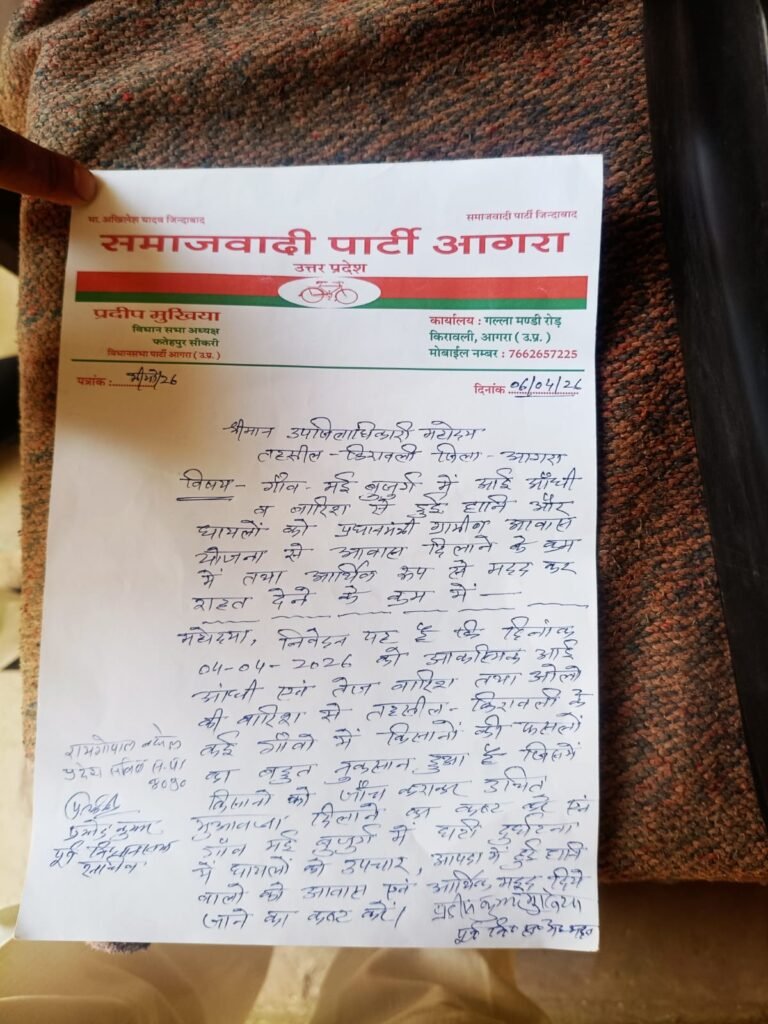 मा. अखिलेश यादव जिन्दाबाद
समाजवादी पार्टी जिन्दाबाद
समाजवादी पार्टी आगरा
उत्तर प्रदेश
प्रदीप मुखिया
विधान सभा अध्यक्ष
फतेहपुर सीकरी
विधानसभा पार्टी आगरा ( उ.प्र. )
कार्यालय : गल्ला मण्डी रोड़
किरावली, आगरा ( उ.प्र. )
मोबाईल नम्बर : 7662657225
पत्रांक :
दिनांक 06/04/26
श्रीमान उपजिलाधिकारी महोदय
तहसील - किरावली जिला - आगरा
विषय - गाँव - मई बुजुर्ग में आई आँधी
व बारिश से हुई हानि और
घायलों को प्रधानमंत्री ग्रामीण आवास
योजना से आवास दिलाने के क्रम
में तथा आर्थिक रूप से मदद कर
राहत देने के क्रम में -
महोदया, निवेदन यह है कि दिनांक
04-04-2026 को आकस्मिक आई
आंधी एवं तेज बारिश तथा ओलो
की बारिश से तहसील - किरावली के
कई गाँवो में किसानों की फसलों
का बहुत नुकसान हुआ है जिसमें
किसानो को जाँच कराकर उचित
मुआवजा दिलाने का कष्ट करें एवं
गाँव मई बुजुर्ग में घटी दुर्घटना
में घायलों को उपचार, आपदा में हुई हानि
वालो को आवास एवं आर्थिक मदद दिये
जाने का कष्ट करें।
रामगोपाल बघेल
प्रदेश सचिव स.पा
उ०प्र०
प्रमोद कुमार
पूर्व विधानसभा